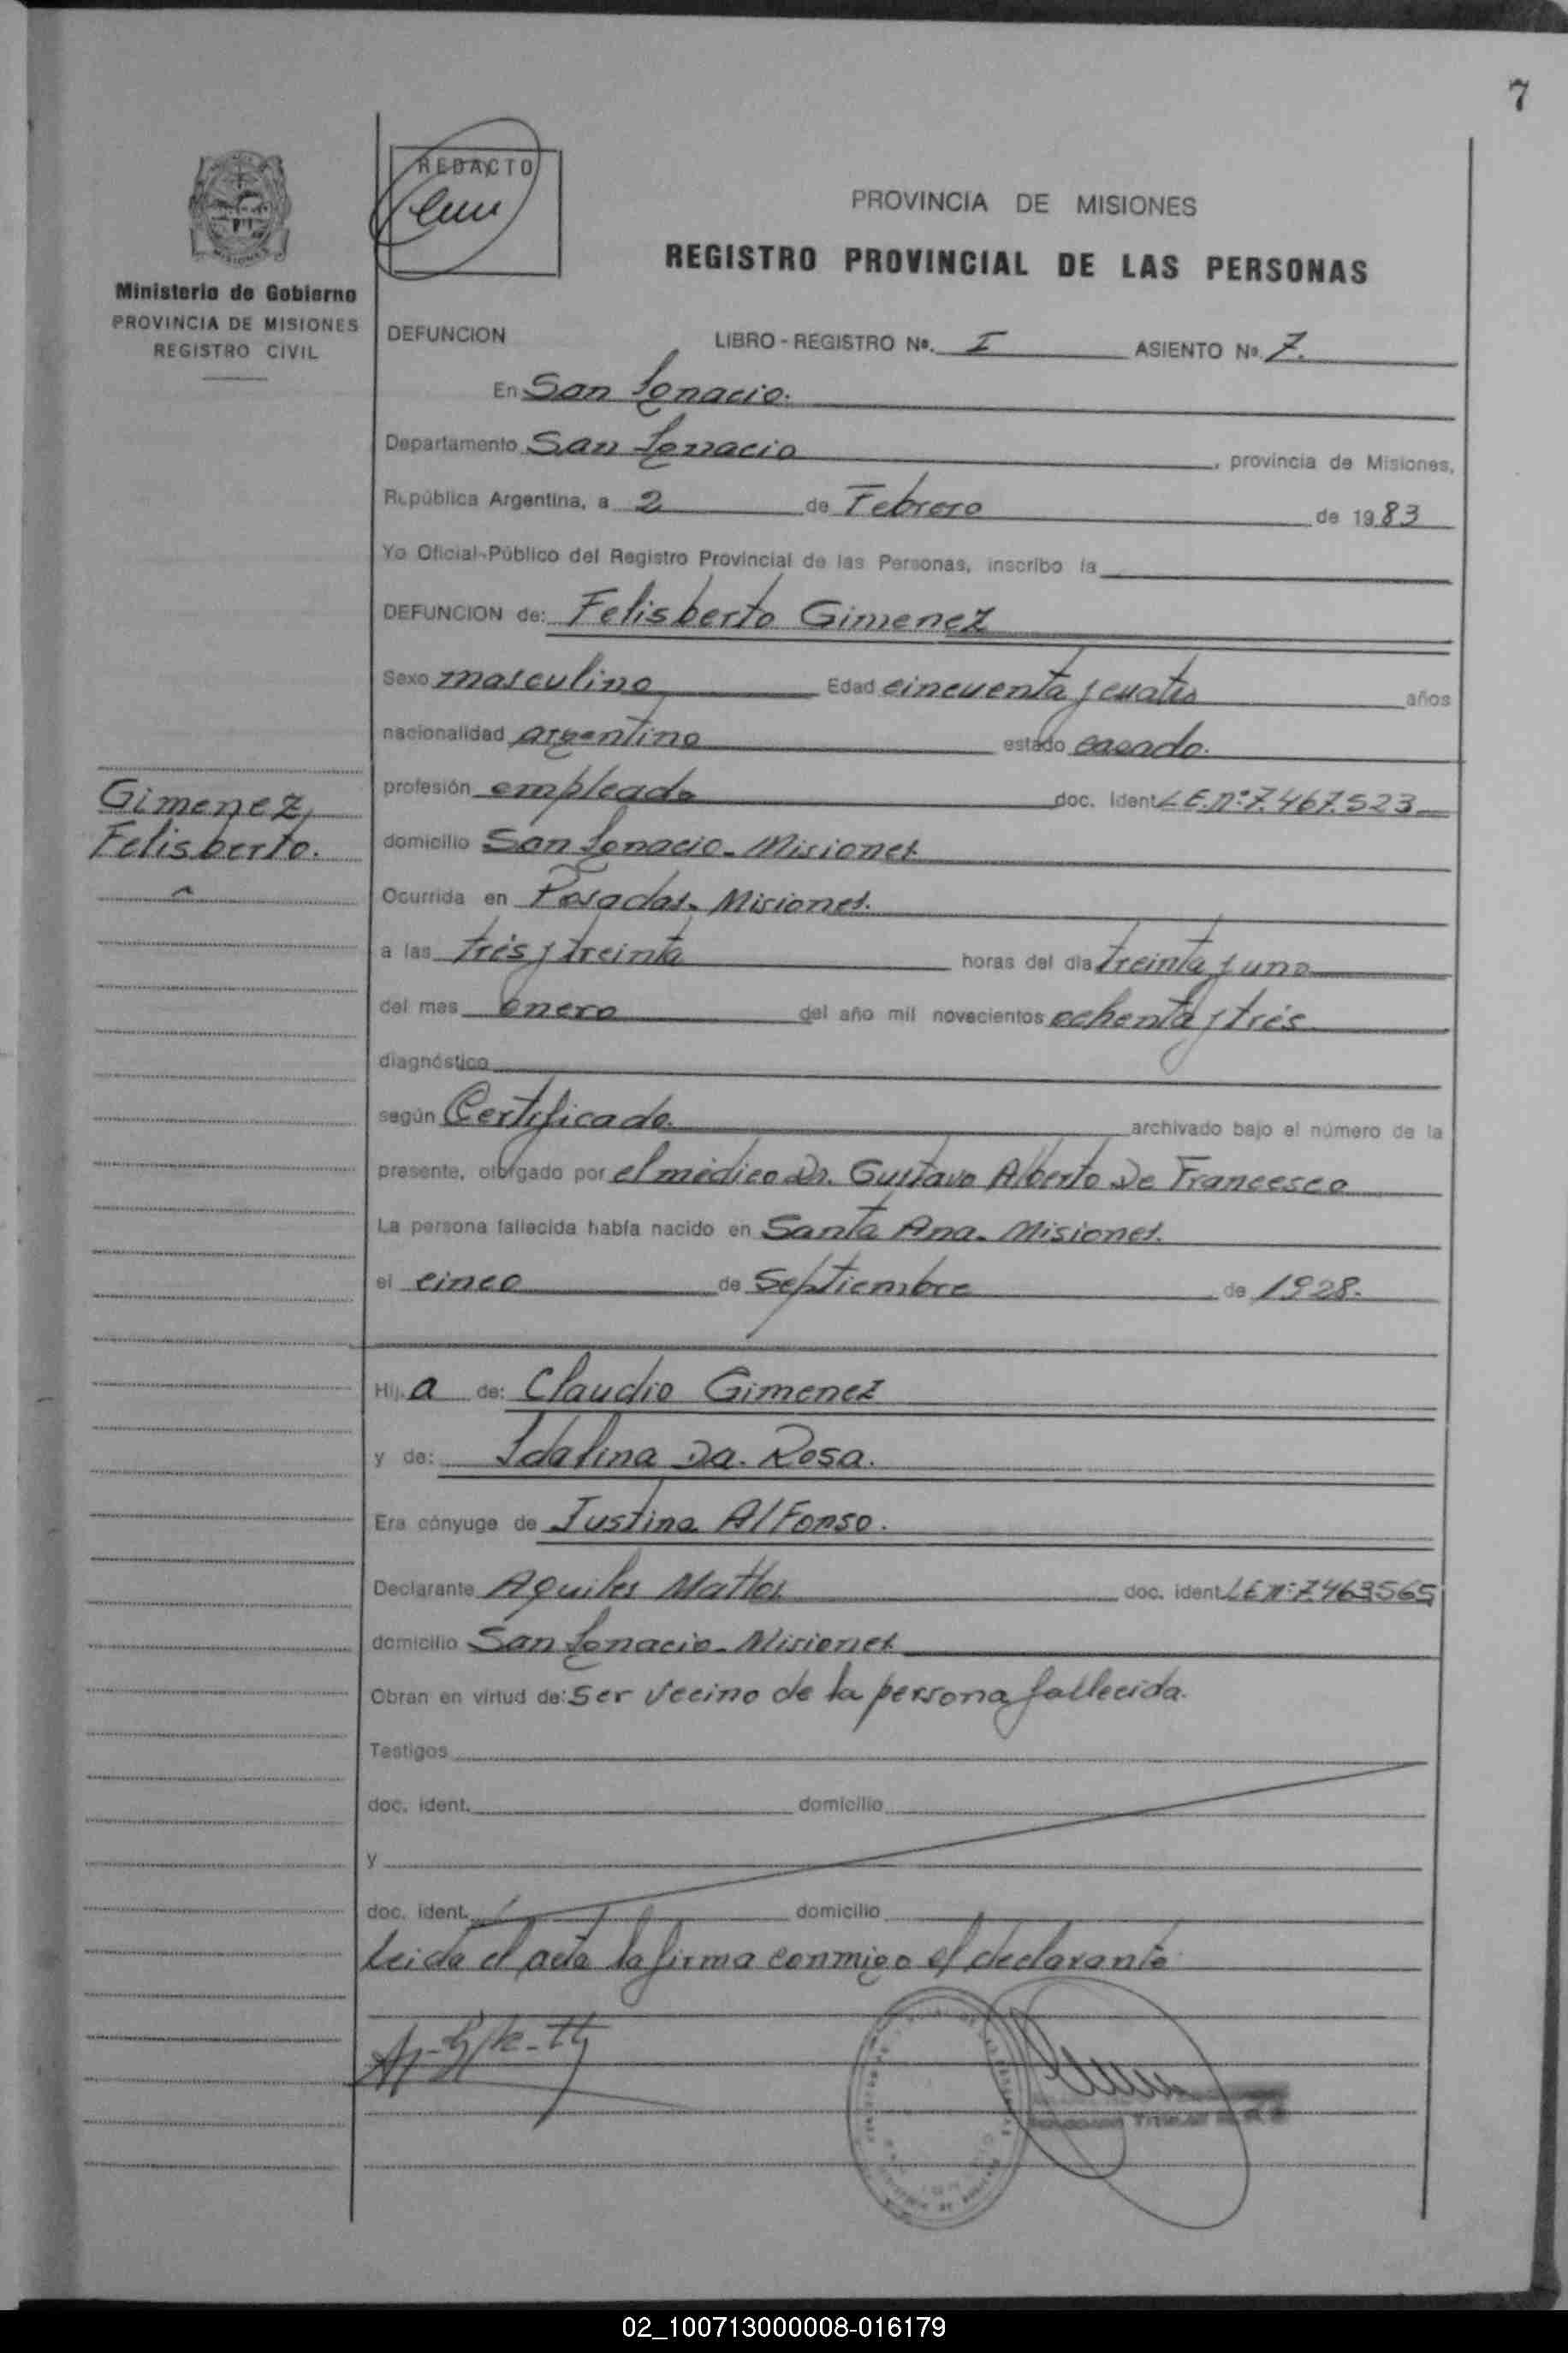 7
REDACTO
PROVINCIA DE MISIONES
REGISTRO PROVINCIAL DE LAS PERSONAS
Ministerio de Gobierno
PROVINCIA DE MISIONES
REGISTRO CIVIL
DEFUNCION LIBRO - REGISTRO Nº. I ASIENTO Nº. 7.
En San Ignacio.
Departamento San Ignacio, provincia de Misiones,
República Argentina, a 2 de Febrero de 1983
Yo Oficial-Público del Registro Provincial de las Personas, inscribo la
DEFUNCION de: Felisberto Gimenez
Sexo masculino Edad cincuenta y cuatro años
nacionalidad argentino estado casado.
Gimenez,
Felisberto.
profesión empleado doc. Ident L.E.nº7.467.523
domicilio San Ignacio. Misiones.
Ocurrida en Posadas. Misiones.
a las trés y treinta horas del día treinta y uno
del mes enero del año mil novecientos ochenta y trés
diagnóstico
según Certificado. archivado bajo el número de la
presente, otorgado por el médico Dr. Gustavo Alberto De Francesco
La persona fallecida había nacido en Santa Ana. Misiones.
el cinco de Septiembre de 1928.
Hij a de: Claudio Gimenez
y de: Idalina Da. Rosa.
Era cónyuge de Justina Alfonso.
Declarante Aquiles Mattos doc. ident LE nº7.463565
domicilio San Ignacio. Misiones
Obran en virtud de: Ser vecino de la persona fallecida.
Testigos
doc. ident. domicilio
y
doc. ident. domicilio
leida el acta la firma conmigo el declarante
02_100713000008-016179